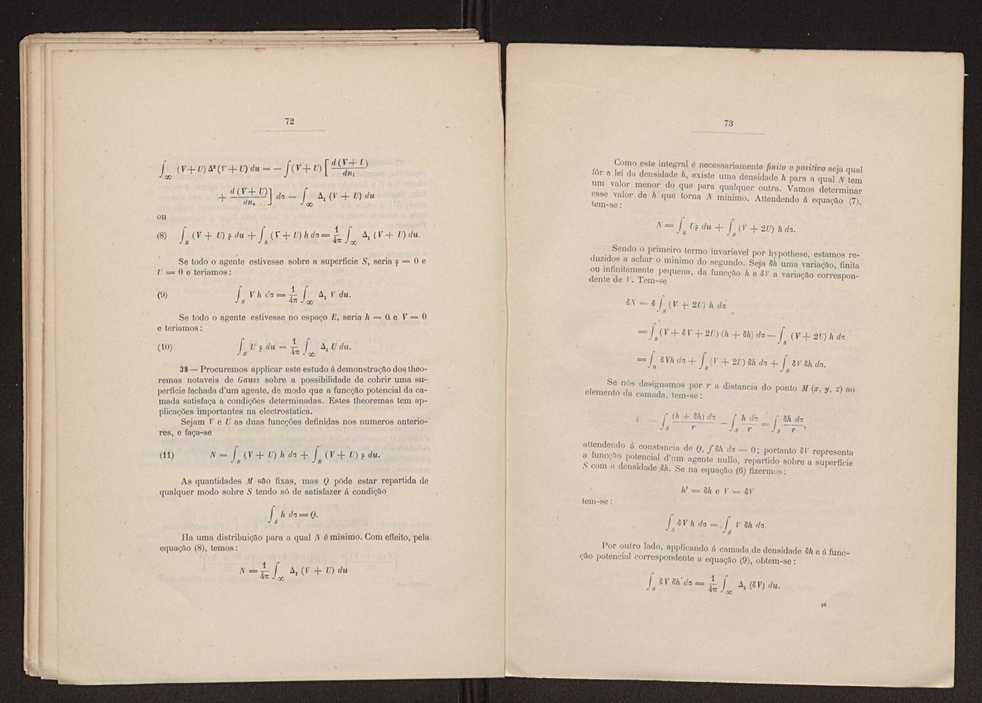 72
∫∞ (V+U) Δ² (V + U) du = — ∫(V+U) [ d (V + U) / dn₁
+ d (V + U) / dnₑ ] dσ — ∫∞ Δ₁ (V + U) du
ou
(8) ∫S (V + U) ρ du + ∫S (V + U) h dσ = 1/4π ∫∞ Δ₁ (V + U) du.
Se todo o agente estivesse sobre a superficie S, seria ρ = 0 e
U = 0 e teriamos:
(9) ∫S V h dσ = 1/4π ∫∞ Δ₁ V du.
Se todo o agente estivesse no espaço E, seria h = 0 e V = 0
e teriamos:
(10) ∫E U ρ du = 1/4π ∫∞ Δ₁ U du.
38 — Procuremos applicar este estudo á demonstração dos theo-
remas notaveis de Gauss sobre a possibilidade de cobrir uma su-
perficie fechada d'um agente, de modo que a funcção potencial da ca-
mada satisfaça a condições determinadas. Estes theoremas tem ap-
plicações importantes na electrostatica.
Sejam V e U as duas funcções definidas nos numeros anterio-
res, e faça-se
(11) N = ∫S (V + U) h dσ + ∫E (V + U) ρ du.
As quantidades M são fixas, mas Q póde estar repartida de
qualquer modo sobre S tendo só de satisfazer á condição
∫S h dσ = Q.
Ha uma distribuição para a qual N é minimo. Com effeito, pela
equação (8), temos:
N = 1/4π ∫∞ Δ₁ (V + U) du
73
Como este integral é necessariamente finito e positivo seja qual
fôr a lei da densidade h, existe uma densidade h para a qual N tem
um valor menor do que para qualquer outra. Vamos determinar
esse valor de h que torna N minimo. Attendendo á equação (7),
tem-se:
N = ∫S Uρ du + ∫S (V + 2U) h dσ.
Sendo o primeiro termo invariavel por hypothese, estamos re-
duzidos a achar o minimo do segundo. Seja δh uma variação, finita
ou infinitamente pequena, da funcção h e δV a variação correspon-
dente de V. Tem-se
δN = δ ∫S (V + 2U) h dσ
= ∫S (V + δV + 2U) (h + δh) dσ — ∫S (V + 2U) h dσ
= ∫S δVh dσ + ∫S (V + 2U) δh dσ + ∫S δV δh dσ.
Se nós designamos por r a distancia do ponto M (x, y, z) ao
elemento da camada, tem-se:
= ∫S (h + δh) dσ / r — ∫S h dσ / r = ∫S δh dσ / r,
attendendo á constancia de Q, ∫ δh dσ = 0; portanto δV representa
a funcção potencial d'um agente nullo, repartido sobre a superficie
S com a densidade δh. Se na equação (6) fizermos:
h' = δh e V' = δV
tem-se:
∫S δV h dσ = ∫S V δh dσ.
Por outro lado, applicando á camada de densidade δh e á func-
ção potencial correspondente a equação (9), obtem-se:
∫S δV δh dσ = 1/4π ∫∞ Δ₁ (δV) du.